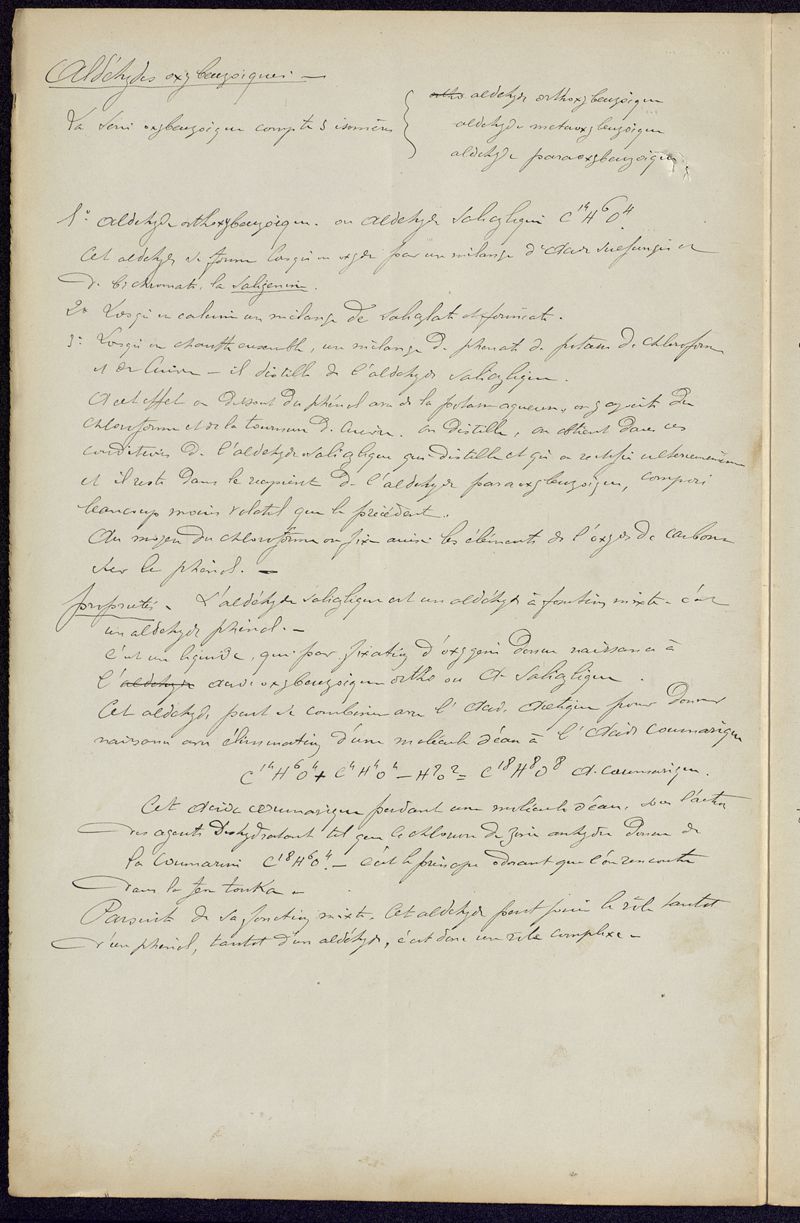 Aldéhydes oxybenzoïques. —
La série oxybenzoïque compte 3 isomères
ortho aldehyde orthoxybenzoique
aldehyde metaoxybenzoïque
aldehyde paraoxybenzoïque
1° Aldehyde orthoxybenzoïque. ou aldehyde salicylique C¹⁴H⁶O⁴.
Cet aldehyde se forme lorsqu'on oxyde par un mélange d'acide sulfurique et
de bichromate, la Saligenine.
2° Lorsqu'on calcine un mélange de salicylate et formiate.
3° Lorsqu'on chauffe ensemble, un mélange de phenate de potasse de chloroforme
et de Cuivre — il distille de l'aldehyde salicylique.
A cet effet on dissout du phénol avec de la potasse aqueuse, on y ajoute du
chloroforme et de la tournure de cuivre. on distille, on obtient dans ces
conditions de l'aldehyde salicylique qui distille et qu'on rectifie ulterieurement
et il reste dans le recipient de l'aldehyde paraoxybenzoique, composé
beaucoup moins volatil que le précédent.
Au moyen du chloroforme on fixe ainsi les éléments de l'oxyde de carbone
sur le phénol. —
propriétés. L'aldéhyde salicylique est un aldéhyde à fonction mixte. c'est
un aldehyde phénol. —
C'est un liquide, qui par fixation d'oxygène donne naissance à
l'aldehyde acide oxybenzoïque ortho ou A. salicylique.
Cet aldehyde peut se combiner avec l'acide acetique pour donner
naissance avec élimination d'une molécule d'eau à l'acide coumarique
C¹⁴H⁶O⁴ + C⁴H⁴O⁴ — H²O² = C¹⁸H⁸O⁸ A. coumarique.
Cet acide coumarique perdant une molécule d'eau, sous l'action
des agents Deshydratant tel que le chlorure de zinc anhydre donne de
la coumarine C¹⁸H⁶O⁴. — c'est le principe odorant que l'on rencontre
dans la feve tonka —
Par suite de sa fonction mixte. Cet aldehyde peut jouer le rôle tantot
d'un phénol, tantot d'un aldéhyde, c'est donc un rôle complexe —